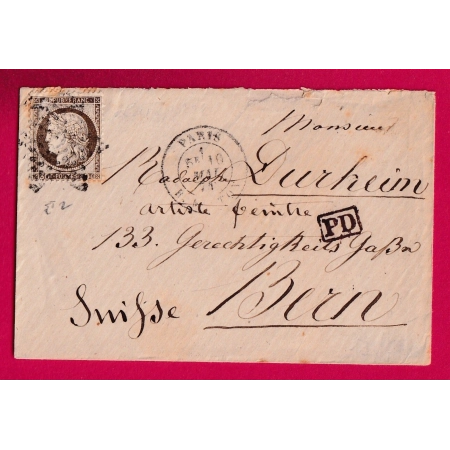 REPUB. FRANC.
PARIS
MAI
Monsieur
Durheim
artiste peintre
PD
133. Gerechtigkeits Gaßn
Suisse Bern